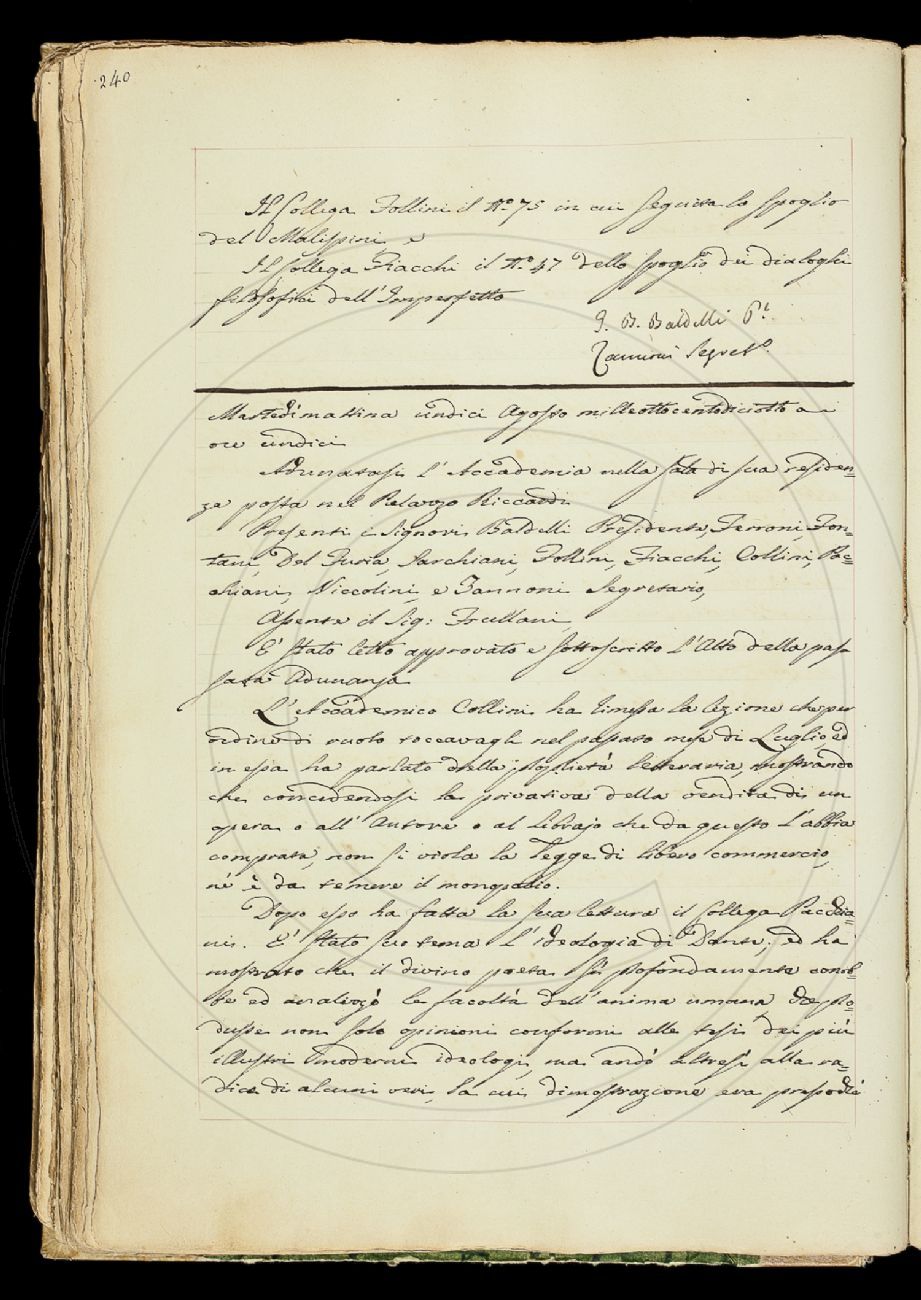 240
Il Collega Follini il N.º 75 in cui seguita lo spoglio
del Malispini, e
Il Collega Fiacchi il N.º 47 dello spoglio dei dialoghi
filosofici dell'Imperfetto
G. B. Baldelli P.e
Zannoni Segret.º
Martedì mattina undici Agosto milleottocentodiciotto a
ore undici
Adunatasi l'Accademia nella sala di sua residen=
za posta nel Palazzo Riccardi
Presenti i Signori Baldelli Presidente, Ferroni, Fon=
tani, Del Furia, Sarchiani, Follini, Fiacchi, Collini, Pac=
chiani, Niccolini, e Zannoni Segretario,
Assente il Sig: Frullani
E' stato letto approvato e sottoscritto l'Atto della pas
sata adunanza
L'Accademico Collini ha rimessa la lezione che per
ordine di ruolo toccavagli nel passato mese di Luglio, ed
in essa ha parlato della proprietà letteraria, mostrando
che concedendosi la privativa della vendita di un
opera o all'Autore o al librajo che da questo l'abbia
comprata, non si viola la legge di libero commercio,
nè è da temere il monopolio.
Dopo esso ha fatta la sua lettura il Collega Pacchia=
ni. E' stato suo tema l'ideologia di Dante; ed ha
mostrato che il divino poeta sì profondamente conob=
be ed analizzò le facoltà dell'anima umana che pro=
dusse non solo opinioni conformi alle tesi dei più
illustri moderni ideologi, ma andò altresì alla ra=
dice di alcuni veri, la cui dimostrazione era pressochè